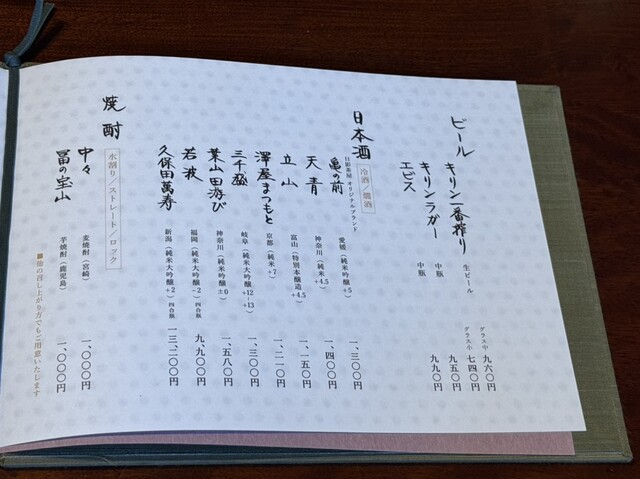 ビール
キリン一番搾り 生ビール グラス中 九六〇円
グラス小 七四〇円
キリンラガー 中瓶 九五〇円
エビス 中瓶 九九〇円
日本酒 冷酒/燗酒
日影茶屋 オリジナルブランド
亀の前 愛媛(純米吟醸+5) 一、三〇〇円
天青 神奈川(純米+4.5) 一、四〇〇円
立山 富山(特別本醸造+4.5) 一、一五〇円
澤屋まつもと 京都(純米+7) 一、二一〇円
三千盛 岐阜(純米大吟醸+12 +13) 一、三〇〇円
葉山田游び 神奈川(純米吟醸±0) 一、五八〇円
若波 福岡(純米大吟醸-2)四合瓶 九、九〇〇円
久保田萬寿 新潟(純米大吟醸+2)四合瓶 一三、二〇〇円
焼酎 水割り/ストレート/ロック
中々 麦焼酎(宮崎) 一、〇〇〇円
冨の宝山 芋焼酎(鹿児島) 一、〇〇〇円
■他の召し上がり方でもご用意いたします